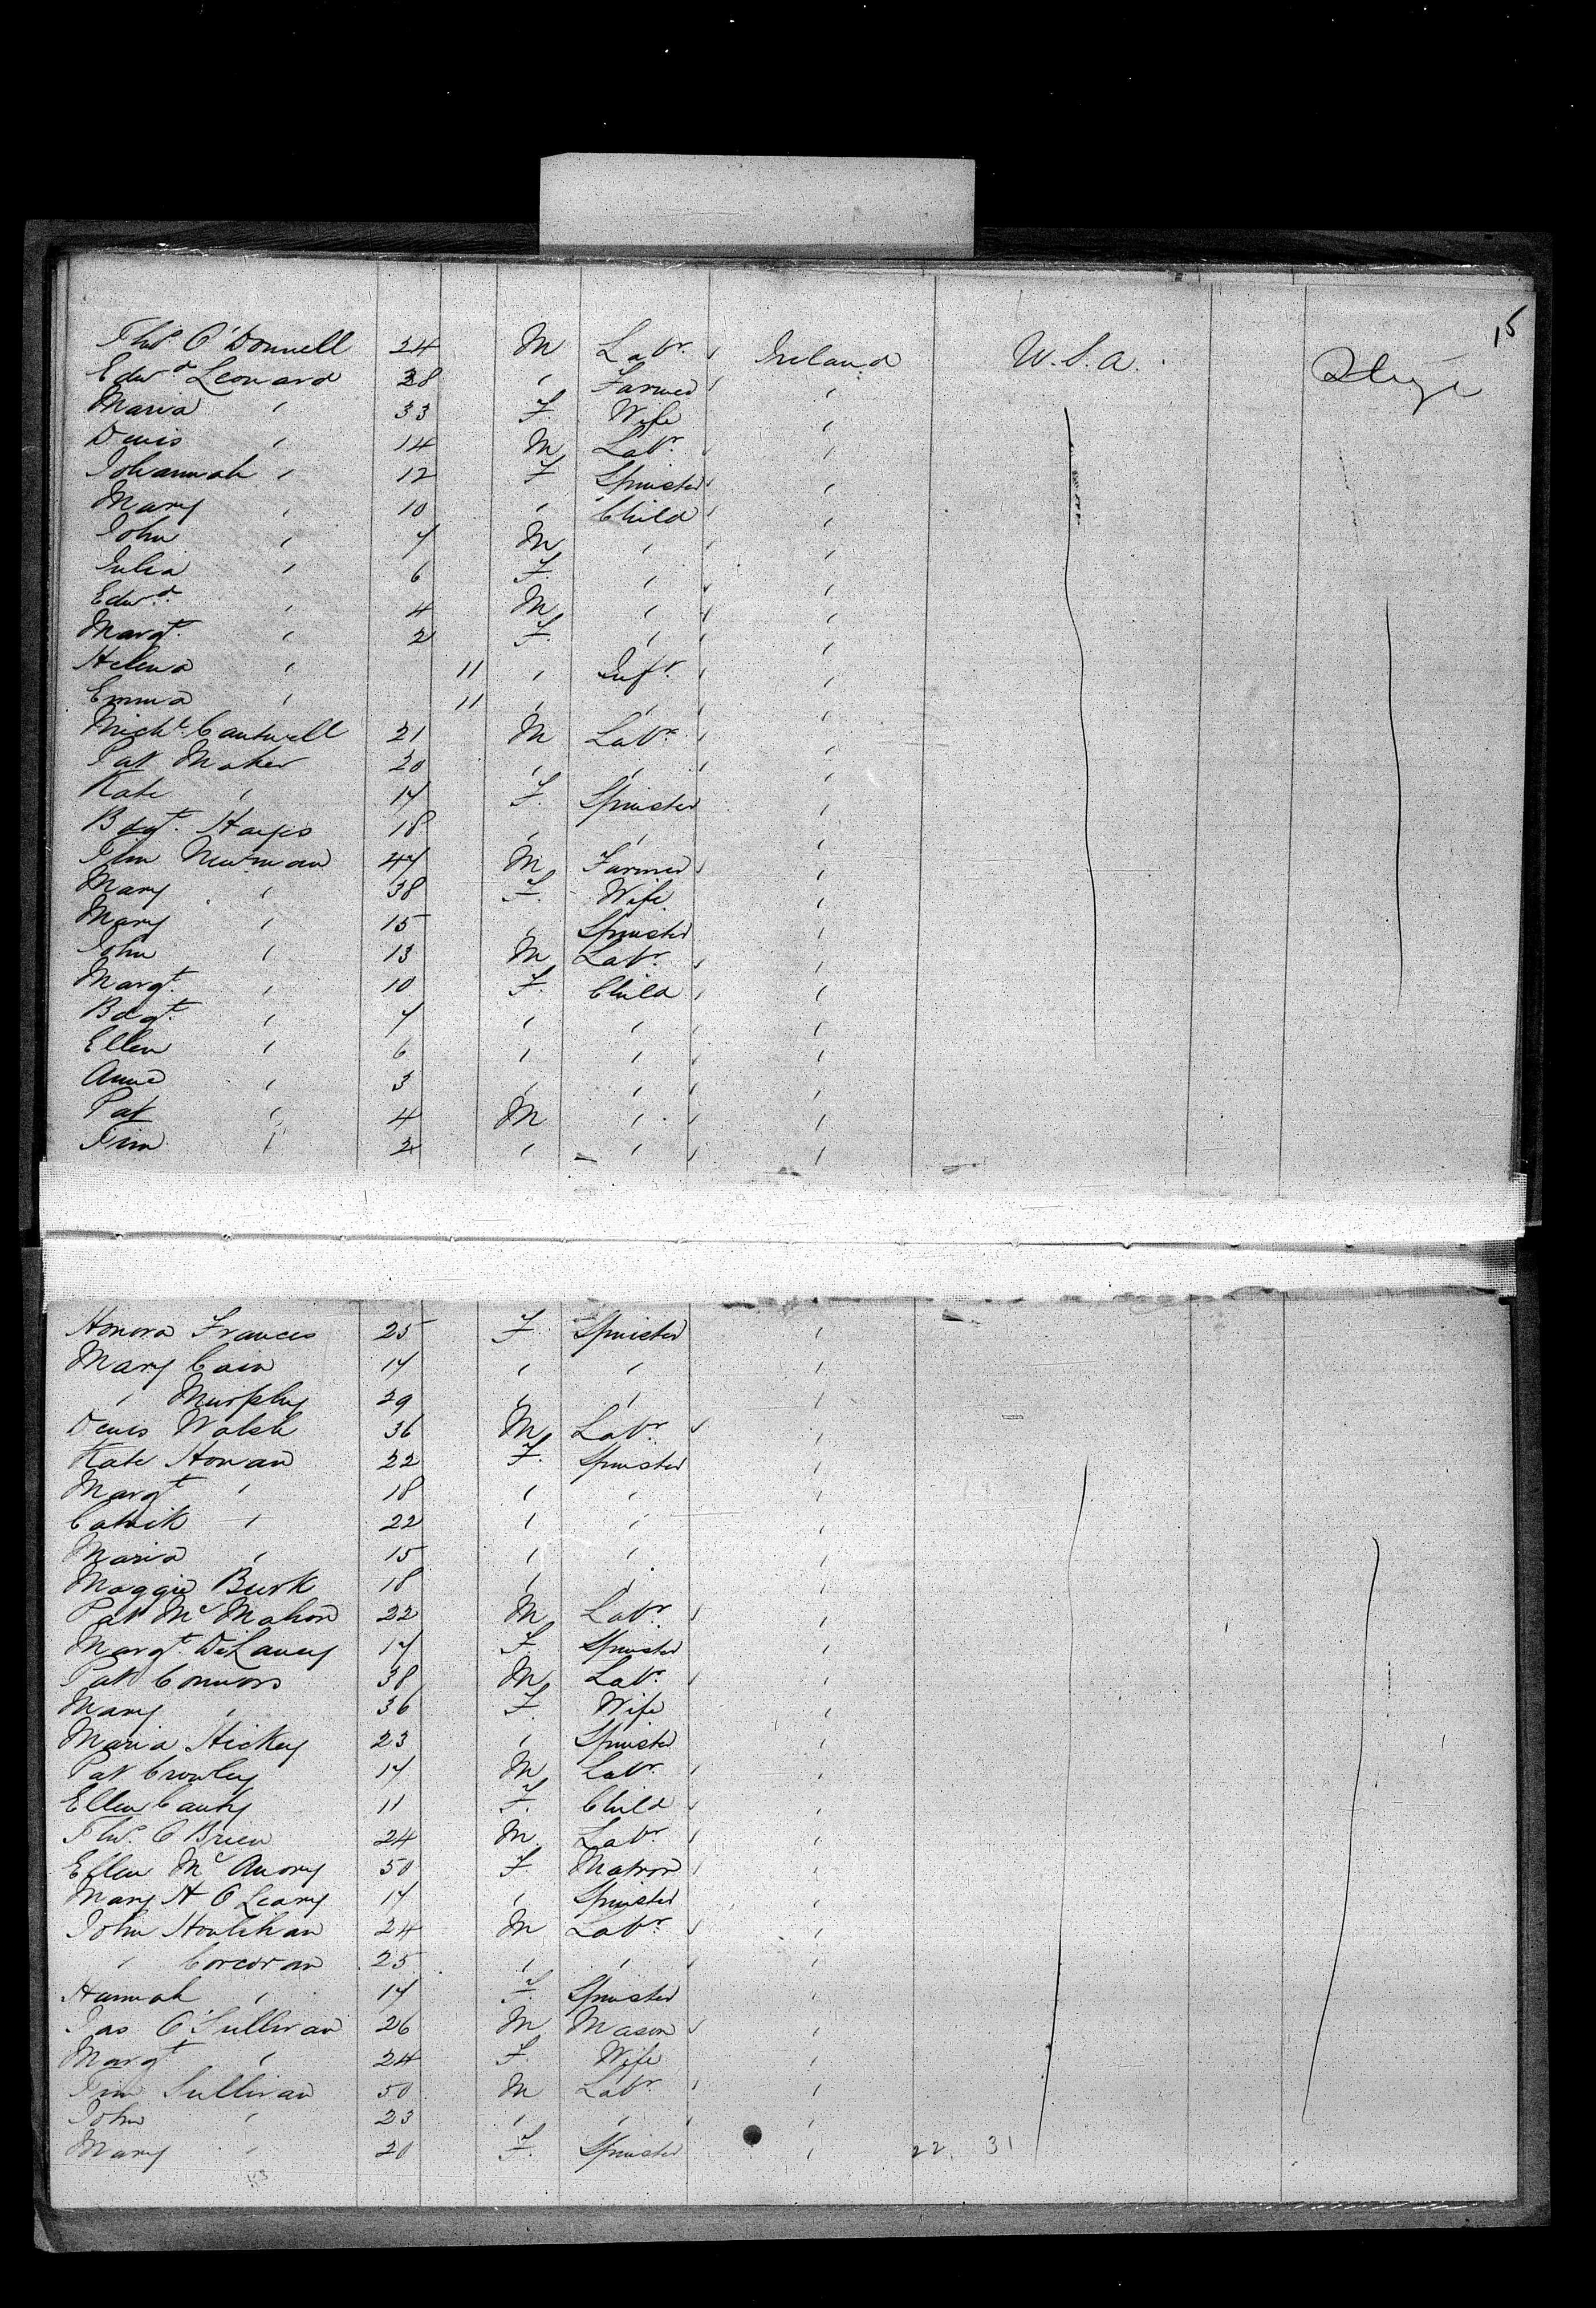 15
Thos O'Donnell 24 M Labr. Ireland U.S.A.
Edwd Leonard 38 , Farmer ,
Maria , 33 F. Wife ,
Denis , 14 M Labr. ,
Johannah , 12 F Spinster ,
Mary , 10 , Child ,
John , 7 M , ,
Julia , 6 F. , ,
Edwd. , 4 M , ,
Margt. , 2 F. , ,
Helena , 11 , Inft. ,
Emma , 11 , , ,
Michl. Cantwell 21 M Labr. ,
Pat Maher 20 , , ,
Kate , 17 F. Spinster ,
Bdgt. Hayes 18 , , ,
Tim Newman 47 M Farmer ,
Mary , 38 F. Wife ,
Mary , 15 , Spinster ,
John , 13 M Labr. ,
Margt. , 10 F. Child ,
Bdgt. , 7 , , ,
Ellen , 6 , , ,
Anne , 3 , , ,
Pat , 4 M , ,
Tim , 2 , , ,
Honora Frances 25 F. Spinster ,
Mary Cain 17 , , ,
, Murphy 29 , , ,
Denis Walsh 36 M Labr. ,
Kate Honan 22 F. Spinster ,
Margt , 18 , , ,
, 22 , , ,
Maria , 15 , , ,
Maggie Burk 18 , , ,
Pat McMahon 22 M Labr. ,
Margt. DeLaney 17 F. Spinster ,
Pat Connors 38 M Labr. ,
Mary , 36 F. Wife ,
Maria Hickey 23 , Spinster ,
Pat Crowley 17 M Labr. ,
Ellen Canty 11 F. Child ,
Thos. O'Brien 24 M. Labr. ,
Ellen Mc 50 F Matron ,
Mary H O'Leary 17 , Spinster ,
John Houlihan 24 M Labr. ,
, Corcoran 25 , , ,
Hannah , 17 F. Spinster ,
Jas O'Sullivan 26 M Mason ,
Margt , 24 F. Wife ,
Tim Sullivan 50 M Labr. ,
John , 23 , , ,
Mary , 20 F. Spinster , 22. 31